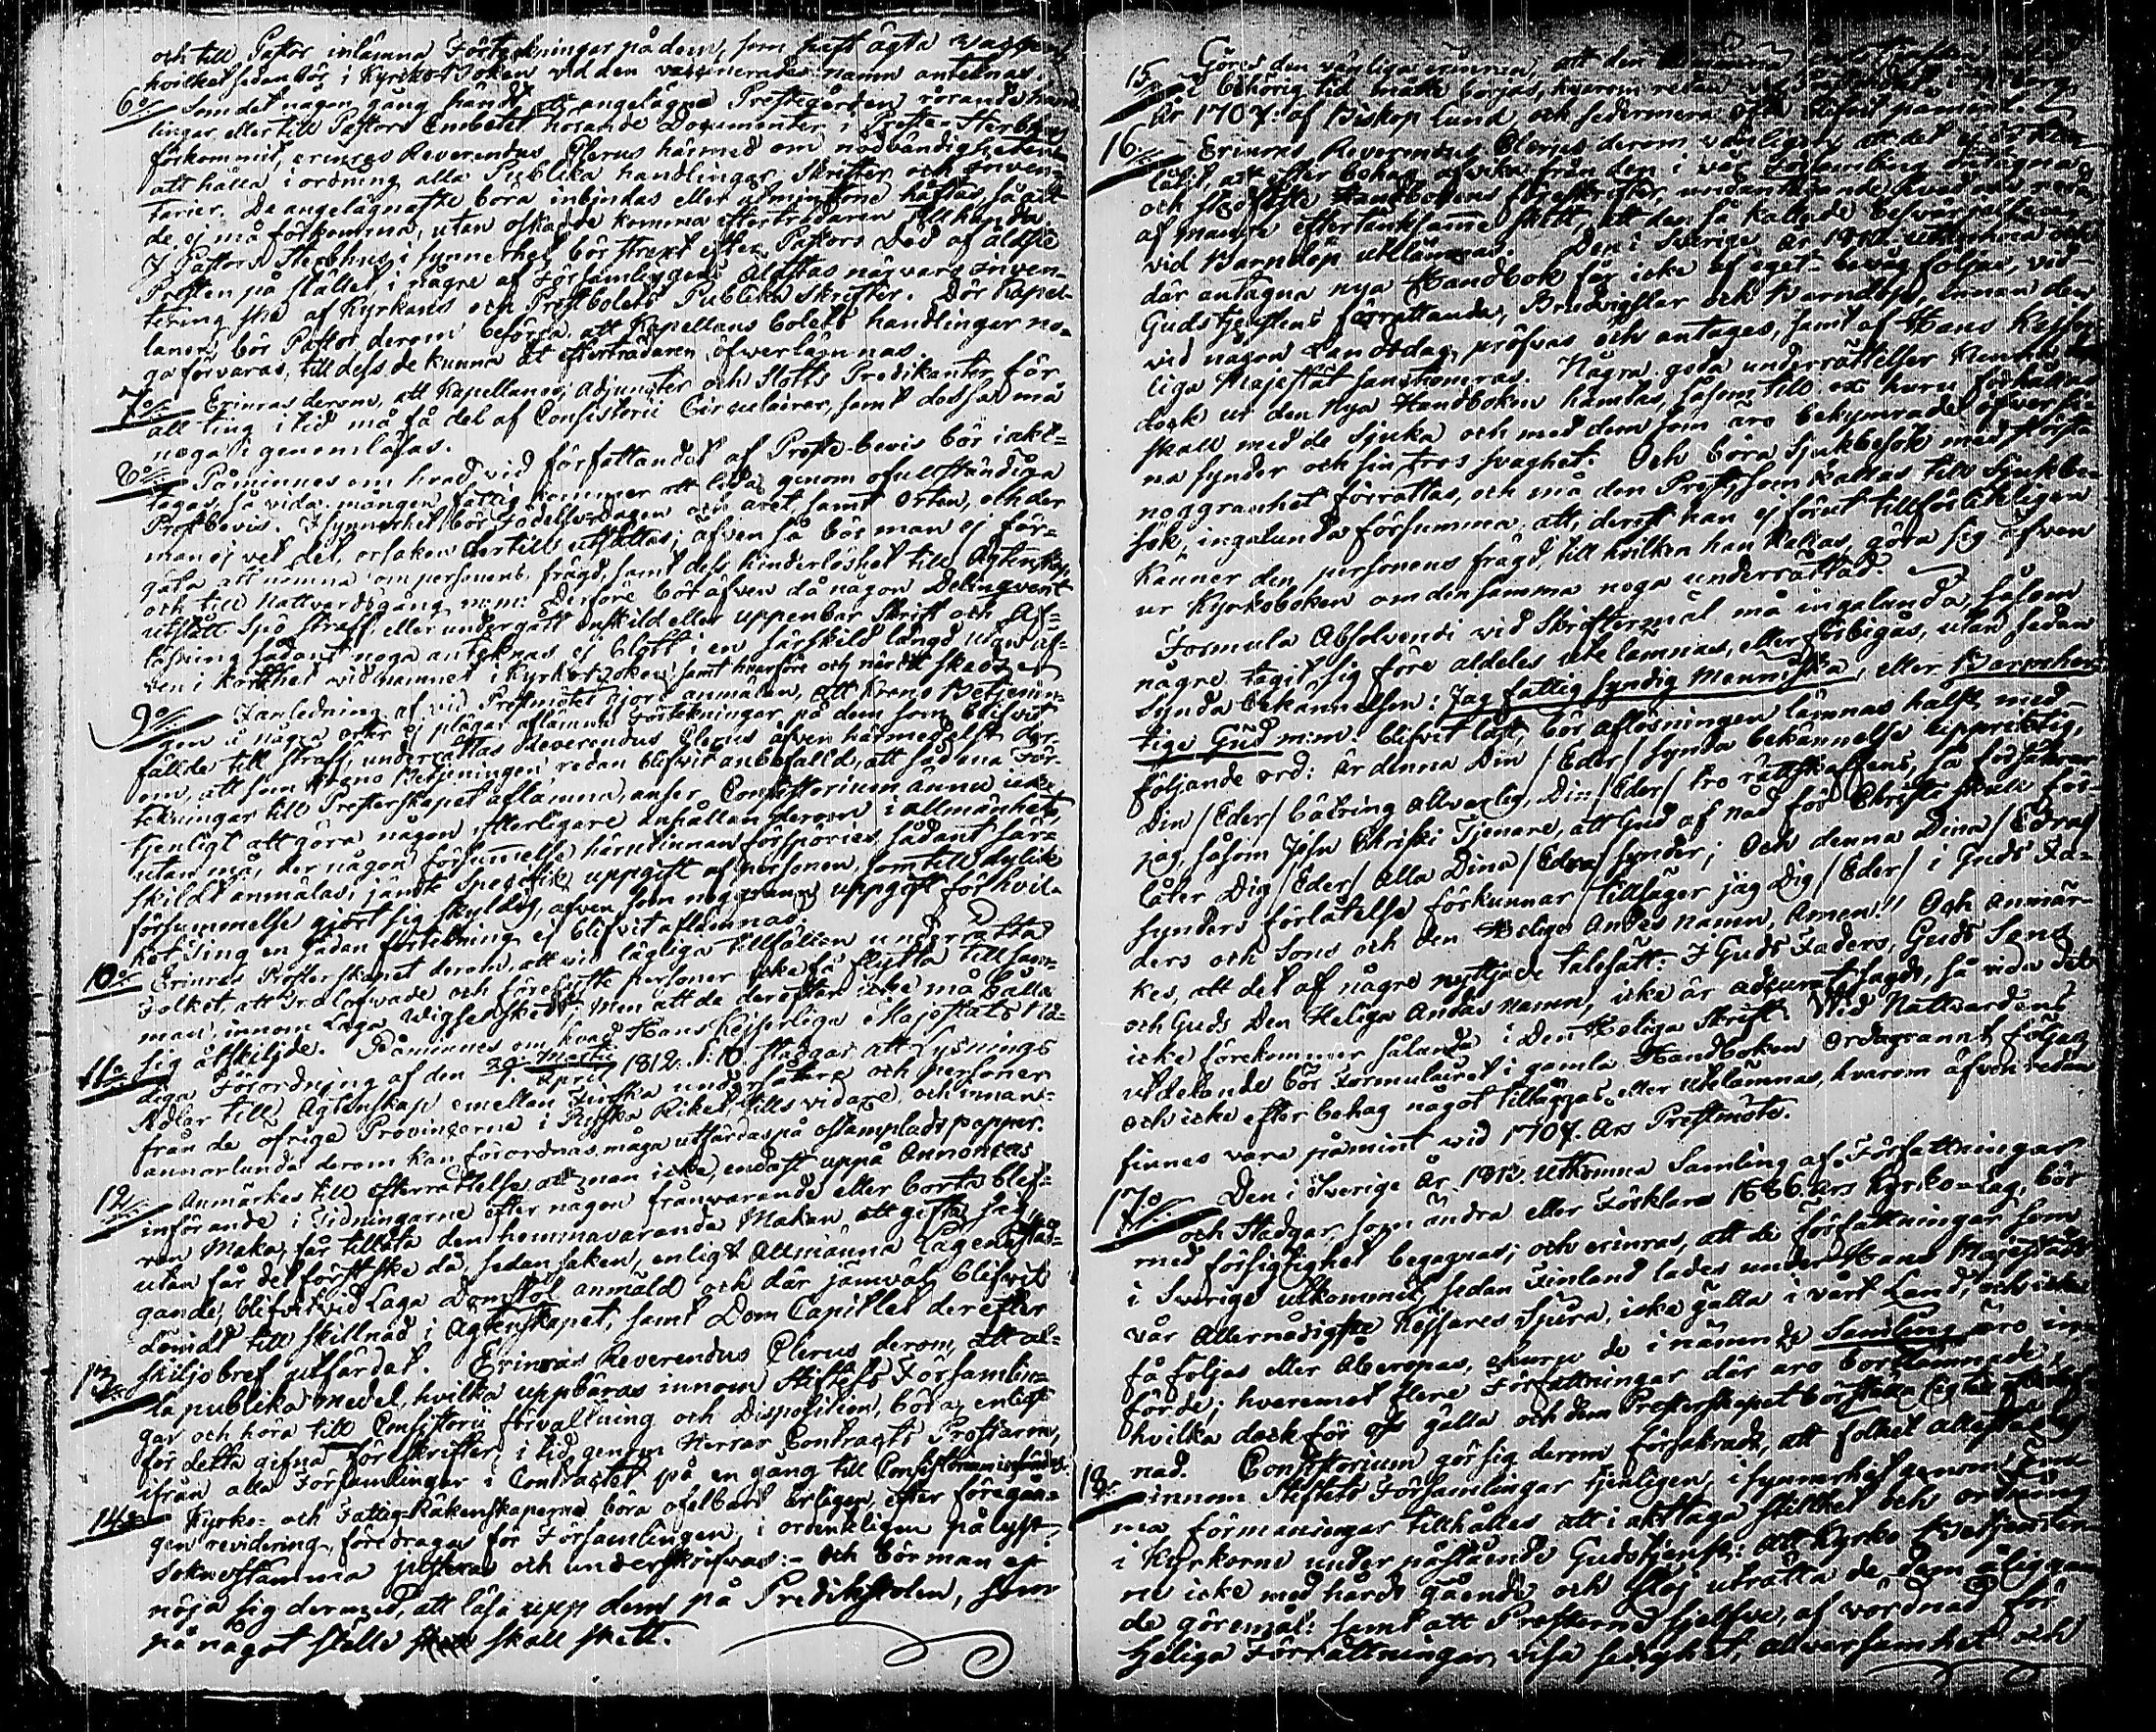 och till Pastor inlämna Förtekningar på dem, som haft ägta
hvilket sedan bör i KyrkoBoken vid den vaccinerades namn antecknas.
6o Som det någon gång händt, att angelägna Prestegården rörande hand-
lingar, eller till Pastors Embetet hörande Documenter i Preste-Sterbhus
förkommit, erinras Reverendus Clerus härmed om nödvändigheten
att hålla i ordning alla Publika handlingar, Skrifter och Inven-
tarier. De angelägnaste böra inbindas eller åtminstone häftas, så att
de ej må förkomma, utan oskadde komma efterträdaren tillhanda.
I Pastors Sterbhus i synnerhet bör straxt efter Pastors Död af äldste
Presten på stället i några af Församlingens Äldstas närvaro Inven-
tering ske af Kyrkans och Prestbolets Publika Skrifter. Dör Kapel-
lanen, bör Pastor derom besörja, att Kapellans bolets handlingar no-
ga förvaras, till dess de kunna åt efterträdaren öfwerlämnas.
7o Erinras derom, att Kapellaner, Adjuncter och Slotts Predikanter för
all ting i tid må få del af Consistorii Circulairer, samt dessa må
noga igenomläsas.
8o Påminnes om hvad vid författandet af Preste-bevis bör iakt-
tagas, så vida mången fattig kommer att lida genom ofullständiga
Prestbevis. I synnerhet bör Födelsedagen och året, samt Orten, och der
man ej vet det, orsaken dertill utsättas; äfven så bör man ej för-
gäta att nämna om personens frägd, samt dess hinderlöshet till Ägtenskap
och till Nattvardsgång m:m: Derföre bör äfven då någon Delinqvent
utstått Spö straff, eller undergått enskild eller uppenbar Skrift och Af-
lösning sådant noga anteknas ej blott i en särskild längd utan äf-
ven i korthet vid namnet i KyrkoBoken samt hvarföre och när det skedt.
9o I anledning af vid Prestmötet gjord anmälan, att Krono Betjenin-
gen å några orter ej plägar aflämna Förtekningar på dem som blifvit
fällde till straff, underrättas Reverendus Clerus äfven härmedelst der-
om, att som Krono Betjeningen redan blifvit anbefalld, att sådana För-
tekningar till Presterskapet aflämna, anser Consistorium ännu icke
tjenligt att göra någon ytterligare anhållan derom i allmänhet,
utan må, der någon försummelse härutinnan förspörjes, sådant sär-
skildt anmälas, jämte Specifik uppgift af personen, som till dylik
försummelse gjort sig skyldig, äfven som noggrann uppgift för hvil-
ket Ting en sådan förtekning ej blifvit aflämnad.
10o Erinras Presterskapet derom, att vid lägliga tillfällen underrätta
Folket, att Trolofvade och förlyste personer icke få flytta tillsam-
man innom Laga Wigsel skedt; men att de derefter icke må hålla
sig åtskiljde.
11o Påminnes om hvad Hans Kejserliga Majestäts Nå-
diga Förordning af den 29. Martii / . April 1812. §: 10 stadgar, att Lysnings
Sedlar till Ägtenskap emellan Finska undersåtare och personer
från de öfrige Provinserne i Ryska Riket tills vidare och innan
annorlunda derom kan förordnas, måga utfärdas på ostämpladt papper.
12. Anmärkes till efterrättelse att man icke, endast uppå Annoncers
införande i Tidningarne efter någon frånvarande eller bortablef-
ven Maka, får tillåta den hemmavarande Makan att gifta sig,
utan får det först ske då, sedan saken, enligt Allmänna Lagens stad-
gande, blifvit vid Laga Domstol anmäld och där jämväl blifvit
dömdt till skillnad i Ägtenskapet, samt Dom Capitlet derefter
skiljobref utfärdat.
13. Erinras Reverendus Clerus derom, att al-
la publika medel, hvilka uppbäras innom Stiftets Församlin-
gar och höra till Consistorii förvaltning och Disposition, böra, enligt
för detta gifna Föreskrifter, i tid genom Herrar Contracts Prostarne,
ifrån alla Församlingar i Contractet på en gång till Consistorium insändas.
14. Kyrko- och Fattig-Räkenskaperne böra ofelbart årligen, efter föregån-
gen revidering, föredragas för Församlingen, i ordentligen pålyst
Sokne stämma justeras och underskrifvas: - och bör man ej
nöja sig dermed, att läsa upp dem på Predikstolen, som
på något ställe skall skett.
15. Göres den vänliga erinran, att den
i behörig tid måtte börjas, hvarom redan vid
År 1707. af Biskop Lund och sedermera ofta blifvit påmint.
16. Erinras Reverendus Clerus derom vänligen, att det ej är till-
låtit, att efter behag afvika från den i vår Församling antagna
och stadfäste Handbokens föreskrifter, undantagande hvad nu redan
af mången eftertänksamme skett, att den så kallade besvärjelsen
vid Barndop utelämnas. Den i Sverige år 1811. utkomna och
där antagna nya Handbok får icke af eget bevåg följas, vid
Gudstjenstens förrättande, Brudvigslar och Barndop, innan den
vid någon Landtdag pröfvas och antages, samt af Hans Kejser-
liga Majestät sanctioneras. Några goda underrättelser kunna
dock ur den Nya Handboken hämtas, såsom till ex: huru förhållas
skall med de Sjuka och med dem som äro bekymrade öfver si-
na synder och sin tros svaghet. Och böra Sjukbesök med största
noggranhet förrättas, och må den Prest, som kallas till Sjukbe-
sök, ingalunda försumma, att, derest han ej förut tillförlitligen
känner den personens frägd, till hvilken han kallas, göra sig äfven
ur Kyrkoboken om densamma noga underrättad.
Formula Absolvendi vid Skriftermål må ingalunda, såsom
någre tagit sig före aldeles utelämnas, eller förbigås, utan sedan
Synda bekännelsen: Jag fattig syndig Menniska, eller Barmher-
tige Gud m:m: blifvit läst, bör aflösningen lämnas hälst med
följande ord: Är denna Din /Eder/ Synda bekännelse uppriktig,
Din /Eder/ bättring allvarlig, Din /Eder/ tro rättskaffens, så försäkrar
jag, såsom Jesu Christi Tjenare, att Gud af nåd för Christi skull för-
låter Dig /Eder/ alla Dina /Edra/ synder; Och denna Dina /Edra/
synders förlåtelse förkunnar/tillsäger jag Dig /Eder/ i Guds Fa-
ders och Sons och den Helige Andes namn, Amen!! Och anmär-
kes, att det af några nyttjade talesätt: I Guds Faders, Guds Sons
och Guds Den Heliga Andas namn, icke är adcurat sagdt, så vida det
icke förekommer sålunda i Den Heliga Skrift. Wid Nattvardens
utdelande bör Formulairet i gamla Handboken Ordagrannt följas,
och icke efter behag något tilläggas eller utelämnas, hvarom äfven redan
finnes vara påmint vid 1707. Års Prestmöte.
17o Den i Sverige År 1813. utkomna Samling af Författningar
och Stadgar, som ändra eller Förklara 1686. Års Kyrko-Lag, bör
med försigtighet begagnas; och erinras, att de författningar som
i Sverige utkommit, sedan Finland lades under Hans Majestäts
vår Allernådigste Kejsares Spira, icke gälla i vårt Land, och icke
få följas eller åberopas, ehuru de i nämnde Samling äro in-
förde; hvaremot flere Författningar där äro bortlämnade,
hvilka dock för oss gälla och dem Presterskapet bör ställa sig till
nad.
18. Consistorium gör sig derom försäkradt, att folket allestädes
innom Stiftets Församlingar tjenligen, i synnerhet genom öm-
ma förmaningar tillhålles att i akttaga stillhet och ordning
i Kyrkorne under påstående Gudstjenst: att Kyrko Betjenter-
ne icke med hårdt gående och stoj uträtta de dem åliggan-
de göremål: samt att Presterne sjelfve, af vördnad för
heliga Förrättningar, visa sedighet, allvarsamhet och